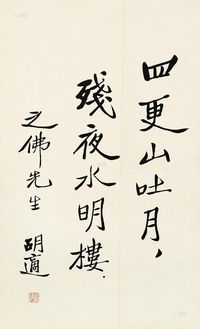 四更山吐月，
殘夜水明樓．
之佛先生
胡適